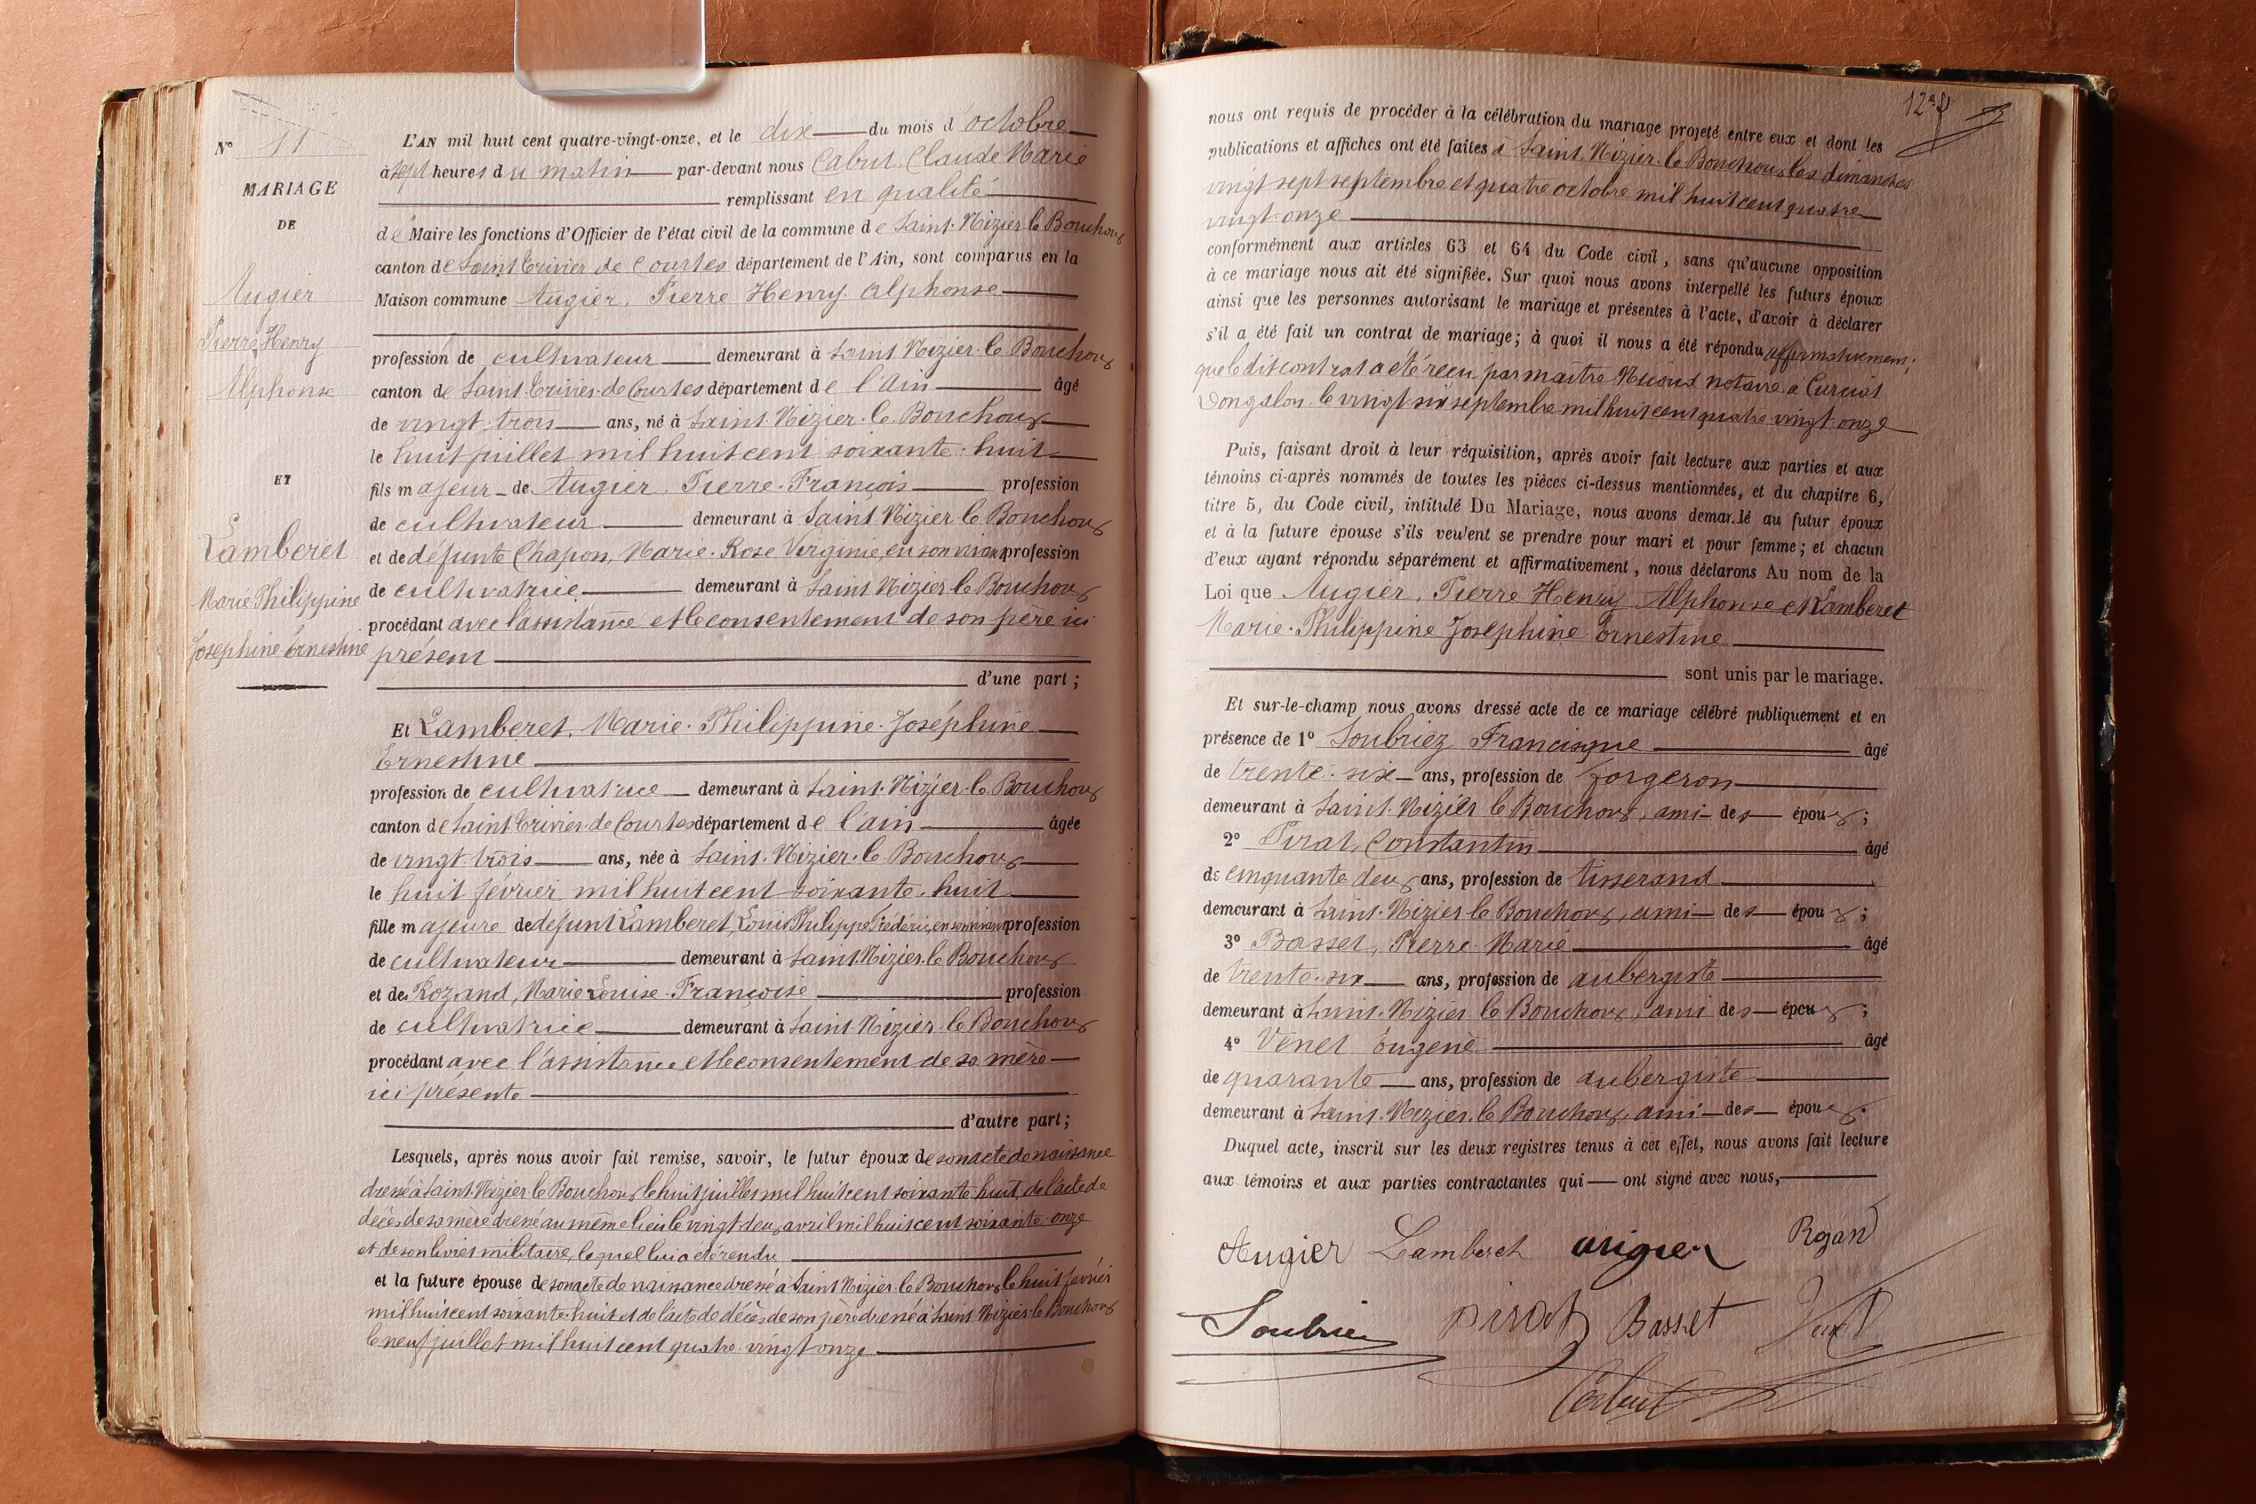 N° 11
MARIAGE
DE
Augier
Pierre Henry
Alphonse
ET
Lamberet
Marie Philippine
Joséphine Ernestine
L'AN mil huit cent quatre-vingt-onze, et le dix du mois d'octobre
à sept heures du matin par-devant nous Cabut Claude Marie
remplissant en qualité
de Maire les fonctions d'Officier de l'état civil de la commune de Saint-Nizier-le Bouchoux
canton de Saint Trivier de Courtes département de l'Ain, sont comparus en la
Maison commune Augier, Pierre Henry Alphonse
profession de cultivateur demeurant à Saint Nizier-le Bouchoux
canton de Saint Trivier-de Courtes département de l'Ain âgé
de vingt trois ans, né à Saint-Nizier-le Bouchoux
le huit juillet mil huit cent soixante-huit
fils majeur de Augier, Pierre-François profession
de cultivateur demeurant à Saint Nizier le Bouchoux
et de défunte Chapon, Marie-Rose Virginie, en son vivant profession
de cultivatrice demeurant à Saint Nizier le Bouchoux
procédant avec l'assistance et le consentement de son père ici
présent
d'une part ;
Et Lamberet, Marie-Philippine-Joséphine
Ernestine
profession de cultivatrice demeurant à Saint-Nizier-le Bouchoux
canton de Saint Trivier-de Courtes département de l'ain âgée
de vingt trois ans, née à Saint-Nizier-le Bouchoux
le huit février mil huit cent soixante-huit
fille majeure de défunt Lamberet, Louis Philippe Frédéric, en son vivant profession
de cultivateur demeurant à Saint Nizier-le Bouchoux
et de Rozand, Marie Louise-Françoise profession
de cultivatrice demeurant à Saint Nizier-le Bouchoux
procédant avec l'assistance et le consentement de sa mère
ici présente
d'autre part ;
Lesquels, après nous avoir fait remise, savoir, le futur époux de son acte de naissance
dressé à Saint-Nizier le Bouchoux, le huit juillet mil huit cent soixante-huit, de l'acte de
décès de sa mère dressé au même lieu le vingt-deux avril mil huit cent soixante-onze
et de son livret militaire, lequel lui a été rendu
et la future épouse de son acte de naissance dressé à Saint Nizier-le Bouchoux le huit février
mil huit cent soixante-huit et de l'acte de décès de son père dressé à Saint Nizier-le Bouchoux
le neuf juillet mil huit cent quatre-vingt onze
nous ont requis de procéder à la célébration du mariage projeté entre eux et dont les
publications et affiches ont été faites à Saint Nizier-le Bouchoux les dimanches
vingt sept septembre et quatre octobre mil huit cent quatre
vingt-onze
conformément aux articles 63 et 64 du Code civil, sans qu'aucune opposition
à ce mariage nous ait été signifiée. Sur quoi nous avons interpellé les futurs époux
ainsi que les personnes autorisant le mariage et présentes à l'acte, d'avoir à déclarer
s'il a été fait un contrat de mariage ; à quoi il nous a été répondu affirmativement ;
que le dit contrat a été reçu par maître notaire à Curciat
Dongalon le vingt six septembre mil huit cent quatre vingt-onze
Puis, faisant droit à leur réquisition, après avoir fait lecture aux parties et aux
témoins ci-après nommés de toutes les pièces ci-dessus mentionnées, et du chapitre 6,
titre 5, du Code civil, intitulé Du Mariage, nous avons demandé au futur époux
et à la future épouse s'ils veulent se prendre pour mari et pour femme ; et chacun
d'eux ayant répondu séparément et affirmativement, nous déclarons Au nom de la
Loi que Augier, Pierre Henry Alphonse et Lamberet
Marie-Philippine Joséphine Ernestine
sont unis par le mariage.
Et sur-le-champ nous avons dressé acte de ce mariage célébré publiquement et en
présence de 1° Soubriez Francisque âgé
de trente-six ans, profession de forgeron
demeurant à Saint-Nizier le Bouchoux, ami des époux ;
2° Pirat, Constantin âgé
de cinquante deux ans, profession de tisserand
demeurant à Saint-Nizier-le Bouchoux, ami des époux ;
3° Basset, Pierre-Marie âgé
de trente-six ans, profession de aubergiste
demeurant à Saint-Nizier le Bouchoux, ami des époux ;
4° Venet Eugène âgé
de quarante ans, profession de aubergiste
demeurant à Saint-Nizier, le Bouchoux, ami des époux.
Duquel acte, inscrit sur les deux registres tenus à cet effet, nous avons fait lecture
aux témoins et aux parties contractantes qui ont signé avec nous,
Augier Lamberet
Pirat Basset
Cabut